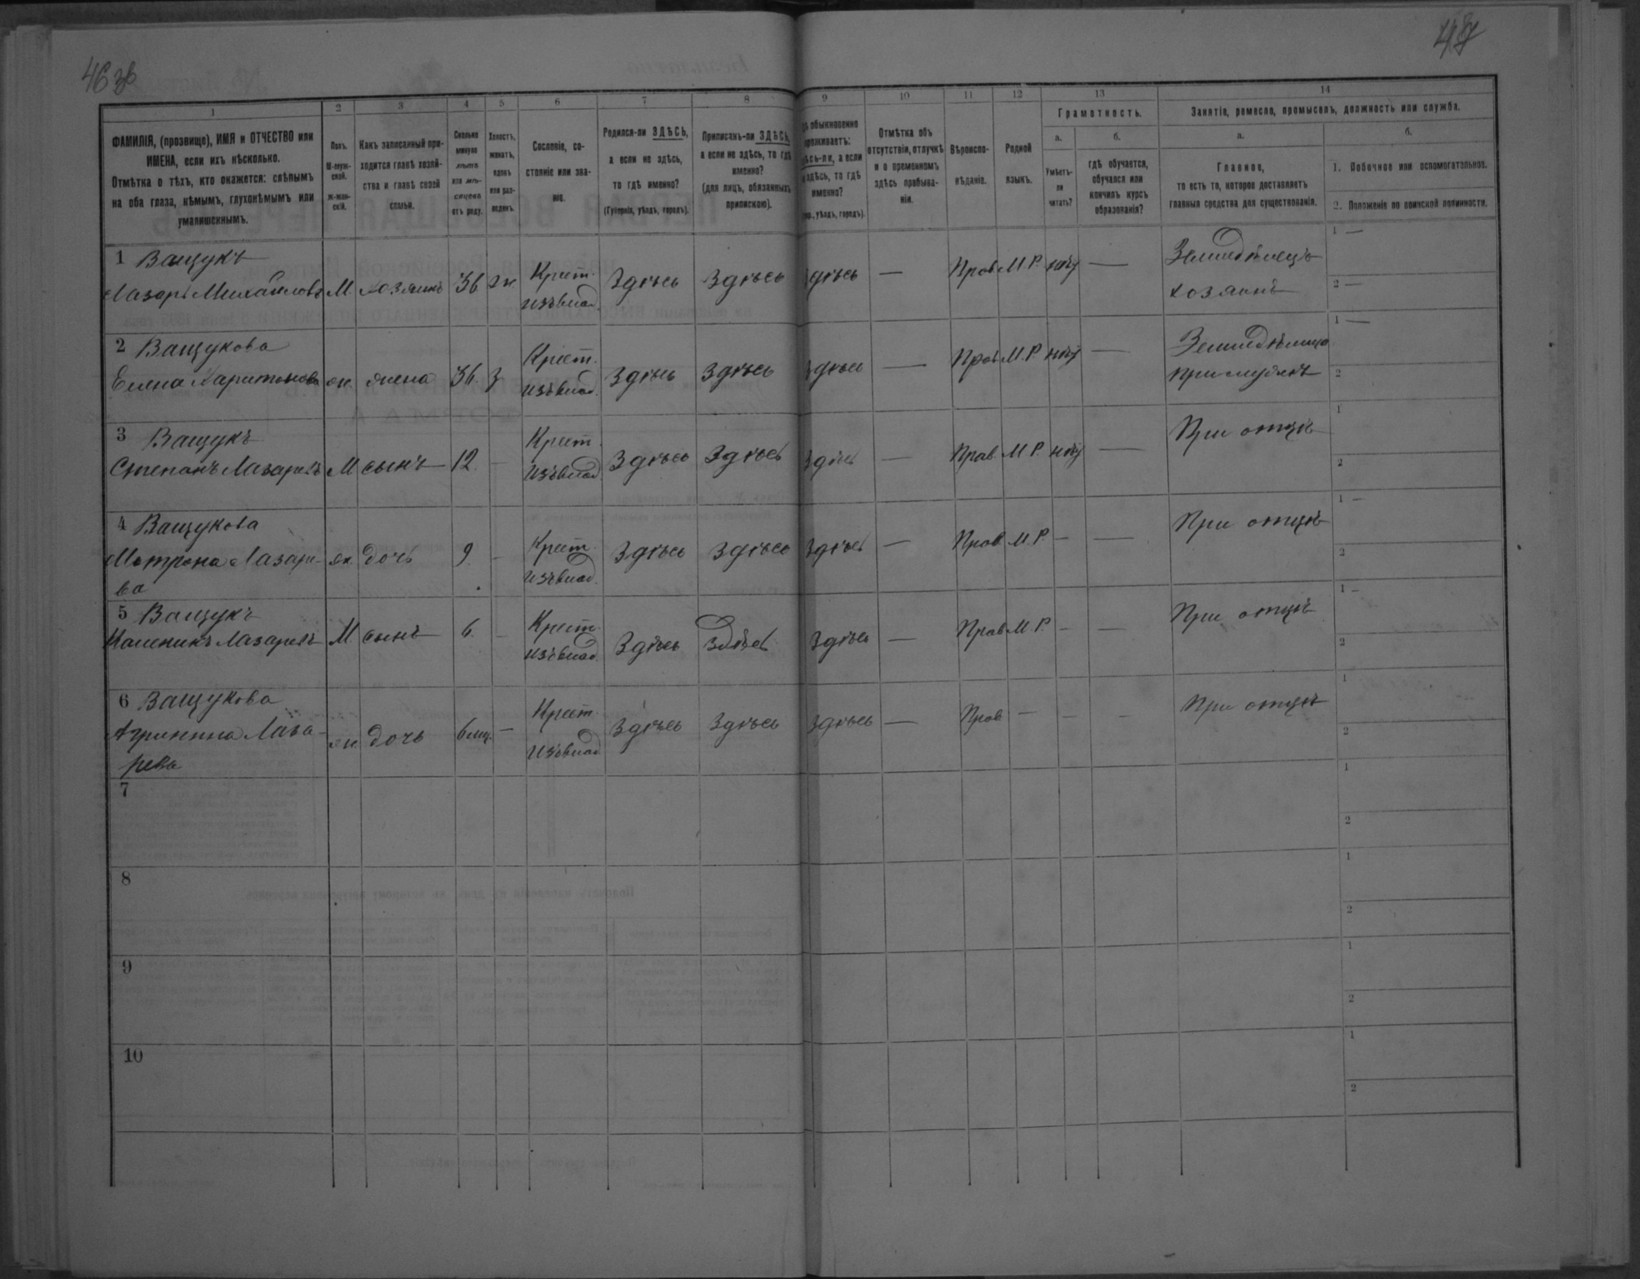 46 зв
47
1
2
3
4
5
6
7
8
9
10
11
12
13
14
ФАМИЛІЯ, (прозвище), ИМЯ и ОТЧЕСТВО или
ИМЕНА, если ихъ нѣсколько.
Отмѣтка о тѣхъ, кто окажется: слѣпымъ
на оба глаза, нѣмымъ, глухонѣмымъ или
умалишеннымъ.
Полъ.
М-мужской.
Ж-женскій.
Какъ записанный приходится
главѣ хозяйства
и главѣ своей
семьи.
Сколько
минуло
лѣтъ
или мѣсяцевъ
отъ роду.
Холостъ,
женатъ,
вдовъ
или разведенъ.
Сословіе, состояніе
или званіе.
Родился-ли ЗДѢСЬ,
а если не здѣсь,
то гдѣ именно?
(Губернія, уѣздъ, городъ).
Приписанъ-ли ЗДѢСЬ,
а если не здѣсь, то гдѣ
именно?
(для лицъ, обязанныхъ
припискою).
обыкновенно
проживаетъ:
здѣсь-ли, а если
не здѣсь, то гдѣ
именно?
уѣздъ, городъ).
Отмѣтка объ
отсутствіи, отлучкѣ
и о временномъ
здѣсь пребываніи.
Вѣроисповѣданіе.
Родной
языкъ.
Грамотность.
а.
Умѣетъ-ли
читать?
б.
гдѣ обучается,
обучался или
кончилъ курсъ
образованія?
Занятіе, ремесло, промыселъ, должность или служба.
а.
Главное,
то есть то, которое доставляетъ
главныя средства для существованія.
б.
1. Побочное или вспомогательное.
2. Положеніе по воинской повинности.
1 Ващукъ
Лазарь Михайловъ М хозяинъ 36 ж Крест. изъ влад. Здѣсь Здѣсь Здѣсь — Прав М.Р. нѣт — Земледѣлецъ хозяинъ 1 — 2 —
2 Ващукова
Елена Харитонова ж. жена 36 З Крест. изъ влад. Здѣсь Здѣсь Здѣсь — Прав М.Р. нѣт — Земледѣлица при мужѣ 1 — 2
3 Ващукъ
Степанъ Лазаревъ М сынъ 12 — Крест. изъ влад. Здѣсь Здѣсь Здѣсь — Прав М.Р. нѣт — При отцѣ 1 2
4 Ващукова
Мотрона Лазарева ж. дочь 9 — Крест. изъ влад. Здѣсь Здѣсь Здѣсь — Прав М.Р. — — При отцѣ 1 — 2
5 Ващукъ
Каленикъ Лазаревъ М сынъ 6 — Крест. изъ влад. Здѣсь Здѣсь Здѣсь — Прав М.Р. — — При отцѣ 1 — 2
6 Ващукова
Лазарева ж дочь 6 мц. — Крест. изъ влад. Здѣсь Здѣсь Здѣсь — Прав — — — При отцѣ 1 2
7 1 2
8 1 2
9 1 2
10 1 2